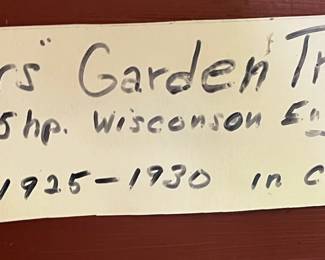 rs" Garden Tr
5 hp. Wisconson En
1925-1930 in C